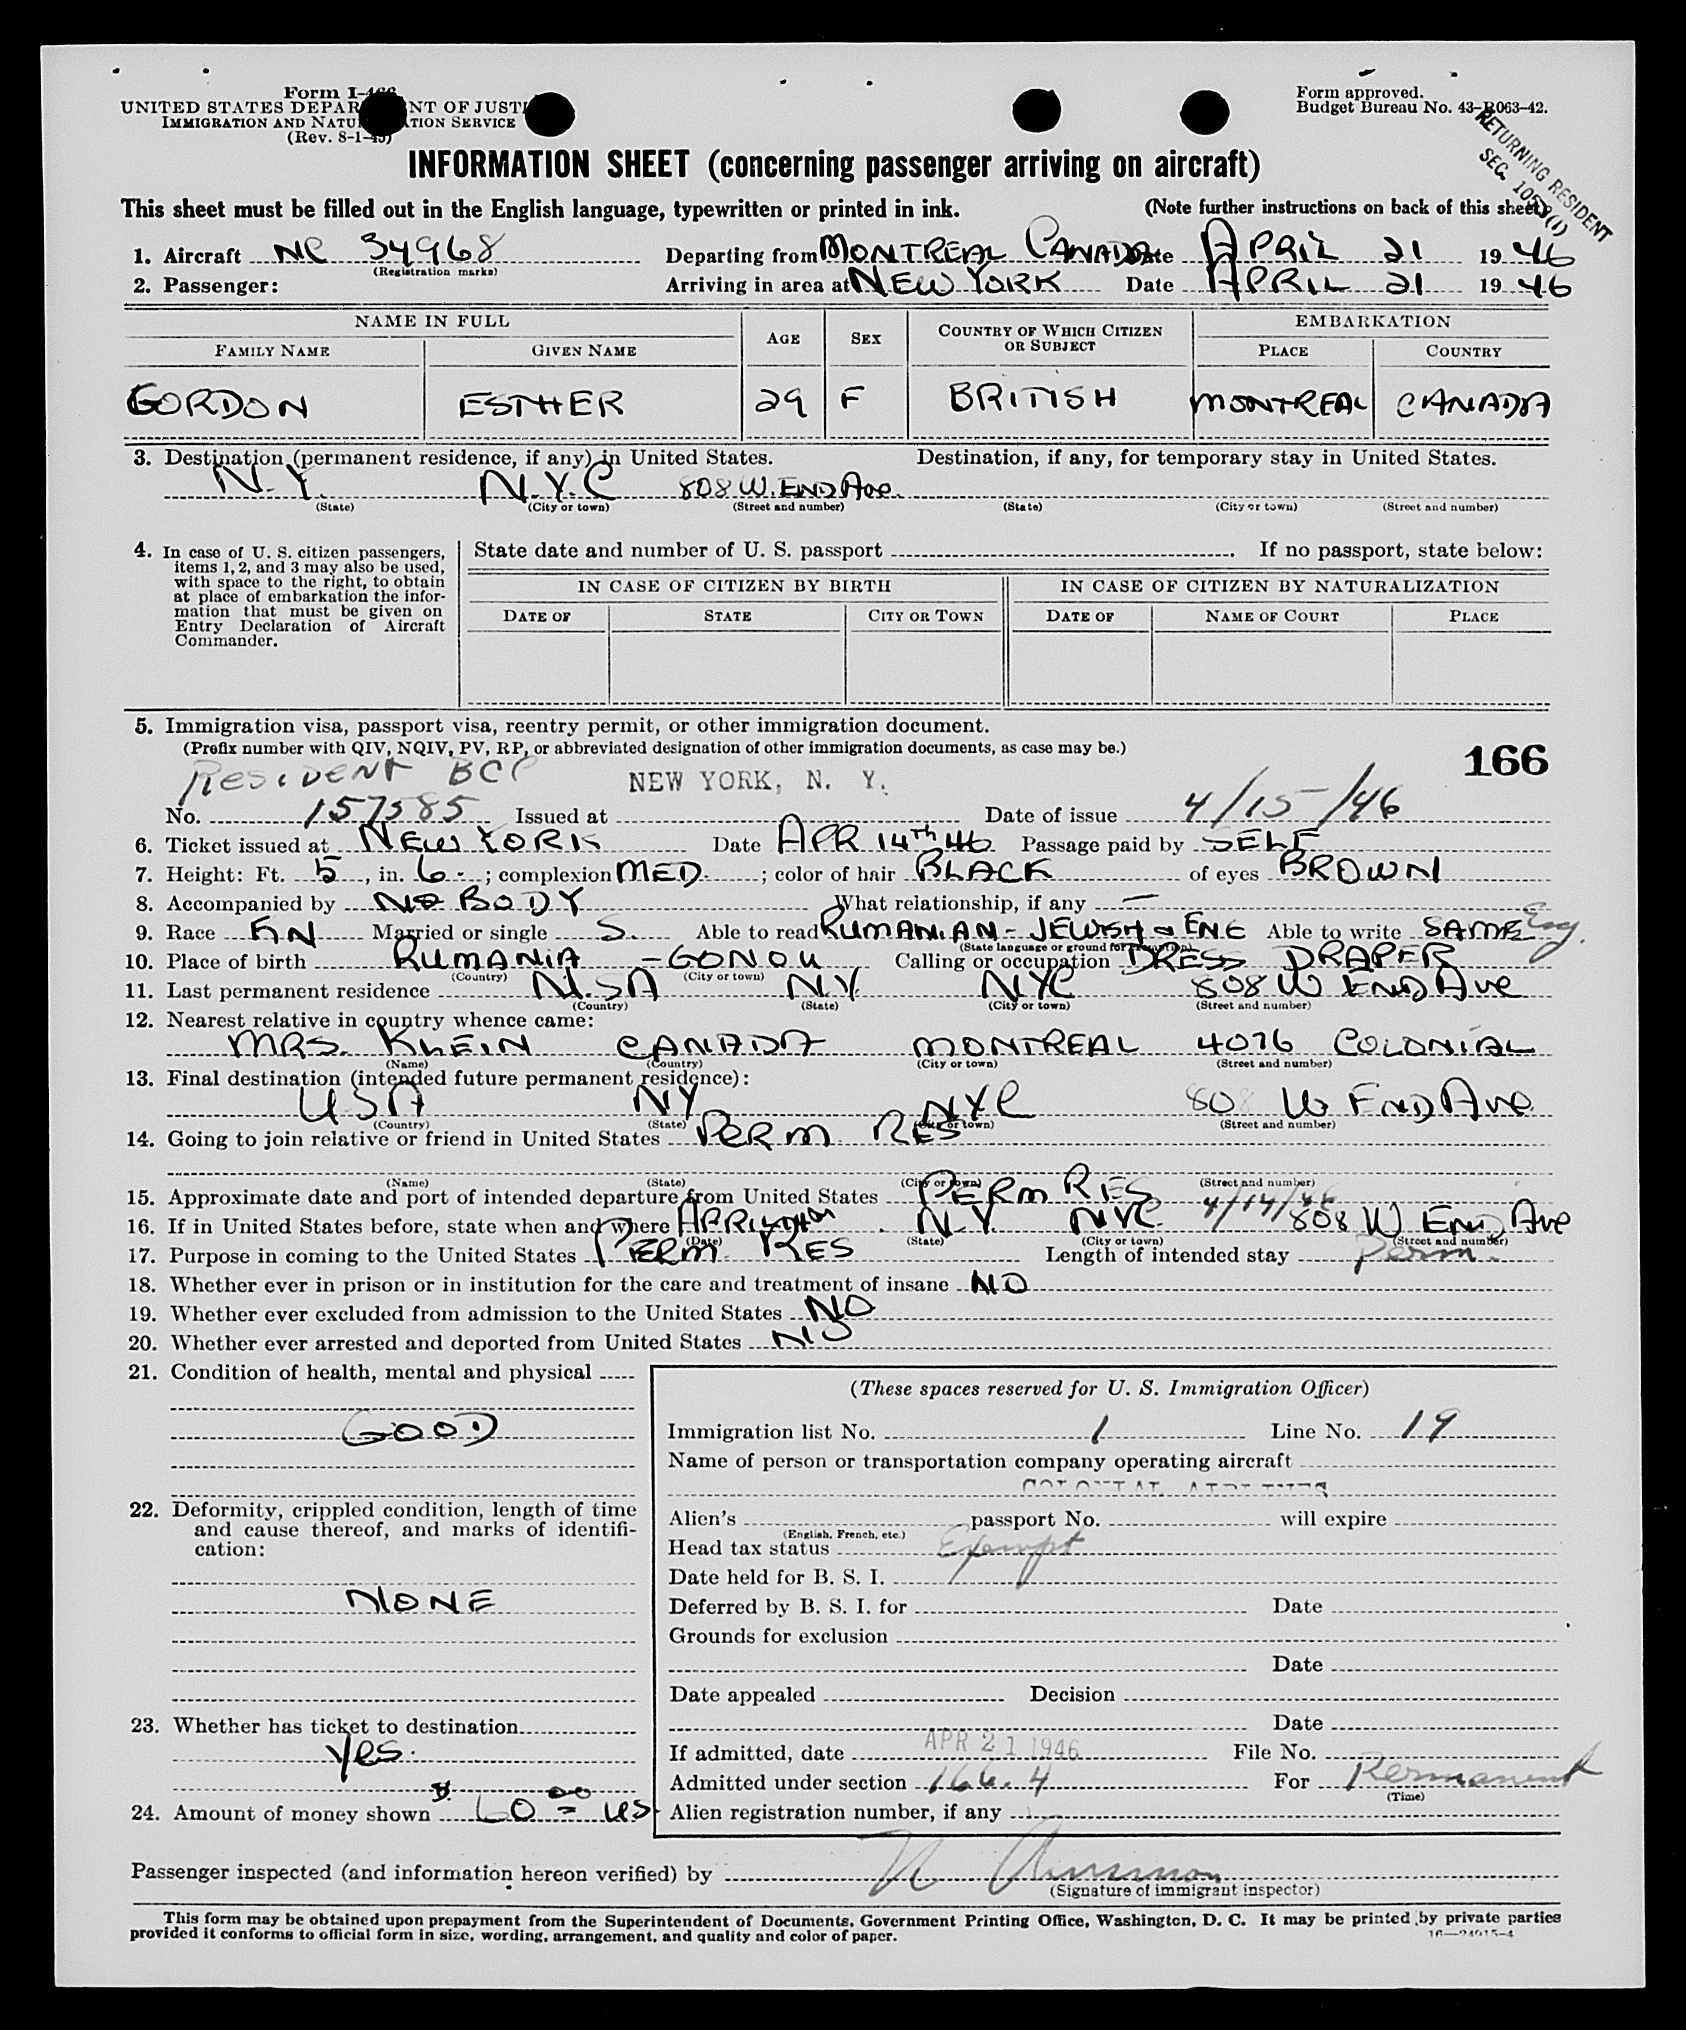 Form I-466
UNITED STATES DEPARTMENT OF JUSTICE
IMMIGRATION AND NATURALIZATION SERVICE
(Rev. 8-1-45)
Form approved.
Budget Bureau No. 43-R063-42.
RETURNING RESIDENT
SEC. 105.3(1)
INFORMATION SHEET (concerning passenger arriving on aircraft)
This sheet must be filled out in the English language, typewritten or printed in ink. (Note further instructions on back of this sheet)
1. Aircraft NC 34968 Departing from MONTREAL CANADA Date APRIL 21 1946
(Registration marks)
2. Passenger: Arriving in area at NEW YORK Date APRIL 21 1946
NAME IN FULL AGE SEX COUNTRY OF WHICH CITIZEN OR SUBJECT EMBARKATION
FAMILY NAME GIVEN NAME PLACE COUNTRY
GORDON ESTHER 29 F BRITISH MONTREAL CANADA
3. Destination (permanent residence, if any) in United States. Destination, if any, for temporary stay in United States.
N.Y. N.Y.C 808 W. END Ave.
(State) (City or town) (Street and number) (State) (City or town) (Street and number)
4. In case of U. S. citizen passengers, items 1, 2, and 3 may also be used, with space to the right, to obtain at place of embarkation the information that must be given on Entry Declaration of Aircraft Commander.
State date and number of U. S. passport . If no passport, state below:
IN CASE OF CITIZEN BY BIRTH IN CASE OF CITIZEN BY NATURALIZATION
DATE OF STATE CITY OR TOWN DATE OF NAME OF COURT PLACE
5. Immigration visa, passport visa, reentry permit, or other immigration document.
(Prefix number with QIV, NQIV, PV, RP, or abbreviated designation of other immigration documents, as case may be.)
166
RESIDENT BCC NEW YORK, N. Y.
No. 157585 Issued at Date of issue 4/15/46
6. Ticket issued at NEW YORK Date APR 14th 46 Passage paid by SELF
7. Height: Ft. 5, in. 6; complexion MED.; color of hair BLACK of eyes BROWN
8. Accompanied by NO BODY What relationship, if any —
9. Race Married or single S. Able to read RUMANIAN - JEWISH & ENG Able to write SAME Eng.
(State language or ground for exemption)
10. Place of birth RUMANIA - Calling or occupation DRESS DRAPER
(Country) (City or town)
11. Last permanent residence U.SA N.Y. NYC 808 W END Ave
(Country) (State) (City or town) (Street and number)
12. Nearest relative in country whence came:
MRS. KLEIN CANADA MONTREAL 4076 COLONIAL
(Name) (Country) (City or town) (Street and number)
13. Final destination (intended future permanent residence):
USA NY NYC 808 W END Ave
(Country) (State) (City or town) (Street and number)
14. Going to join relative or friend in United States PERM RES
(Name) (State) (City or town) (Street and number)
15. Approximate date and port of intended departure from United States PERM RES
16. If in United States before, state when and where APRIL N.Y. NYC 4/14/46 808 W END Ave
(Date) (State) (City or town) (Street and number)
17. Purpose in coming to the United States PERM RES Length of intended stay Perm.
18. Whether ever in prison or in institution for the care and treatment of insane NO
19. Whether ever excluded from admission to the United States NO
20. Whether ever arrested and deported from United States NO
21. Condition of health, mental and physical
GOOD
22. Deformity, crippled condition, length of time and cause thereof, and marks of identification:
NONE
23. Whether has ticket to destination
Yes.
24. Amount of money shown $60 00 US
(These spaces reserved for U. S. Immigration Officer)
Immigration list No. 1 Line No. 19
Name of person or transportation company operating aircraft
COLONIAL AIRLINES
Alien's passport No. will expire
(English, French, etc.)
Head tax status Exempt
Date held for B. S. I.
Deferred by B. S. I. for Date
Grounds for exclusion
Date
Date appealed Decision
Date
If admitted, date APR 21 1946 File No.
Admitted under section 166.4 For Permanent
(Time)
Alien registration number, if any
Passenger inspected (and information hereon verified) by
(Signature of immigrant inspector)
This form may be obtained upon prepayment from the Superintendent of Documents, Government Printing Office, Washington, D. C. It may be printed by private parties
provided it conforms to official form in size, wording, arrangement, and quality and color of paper.